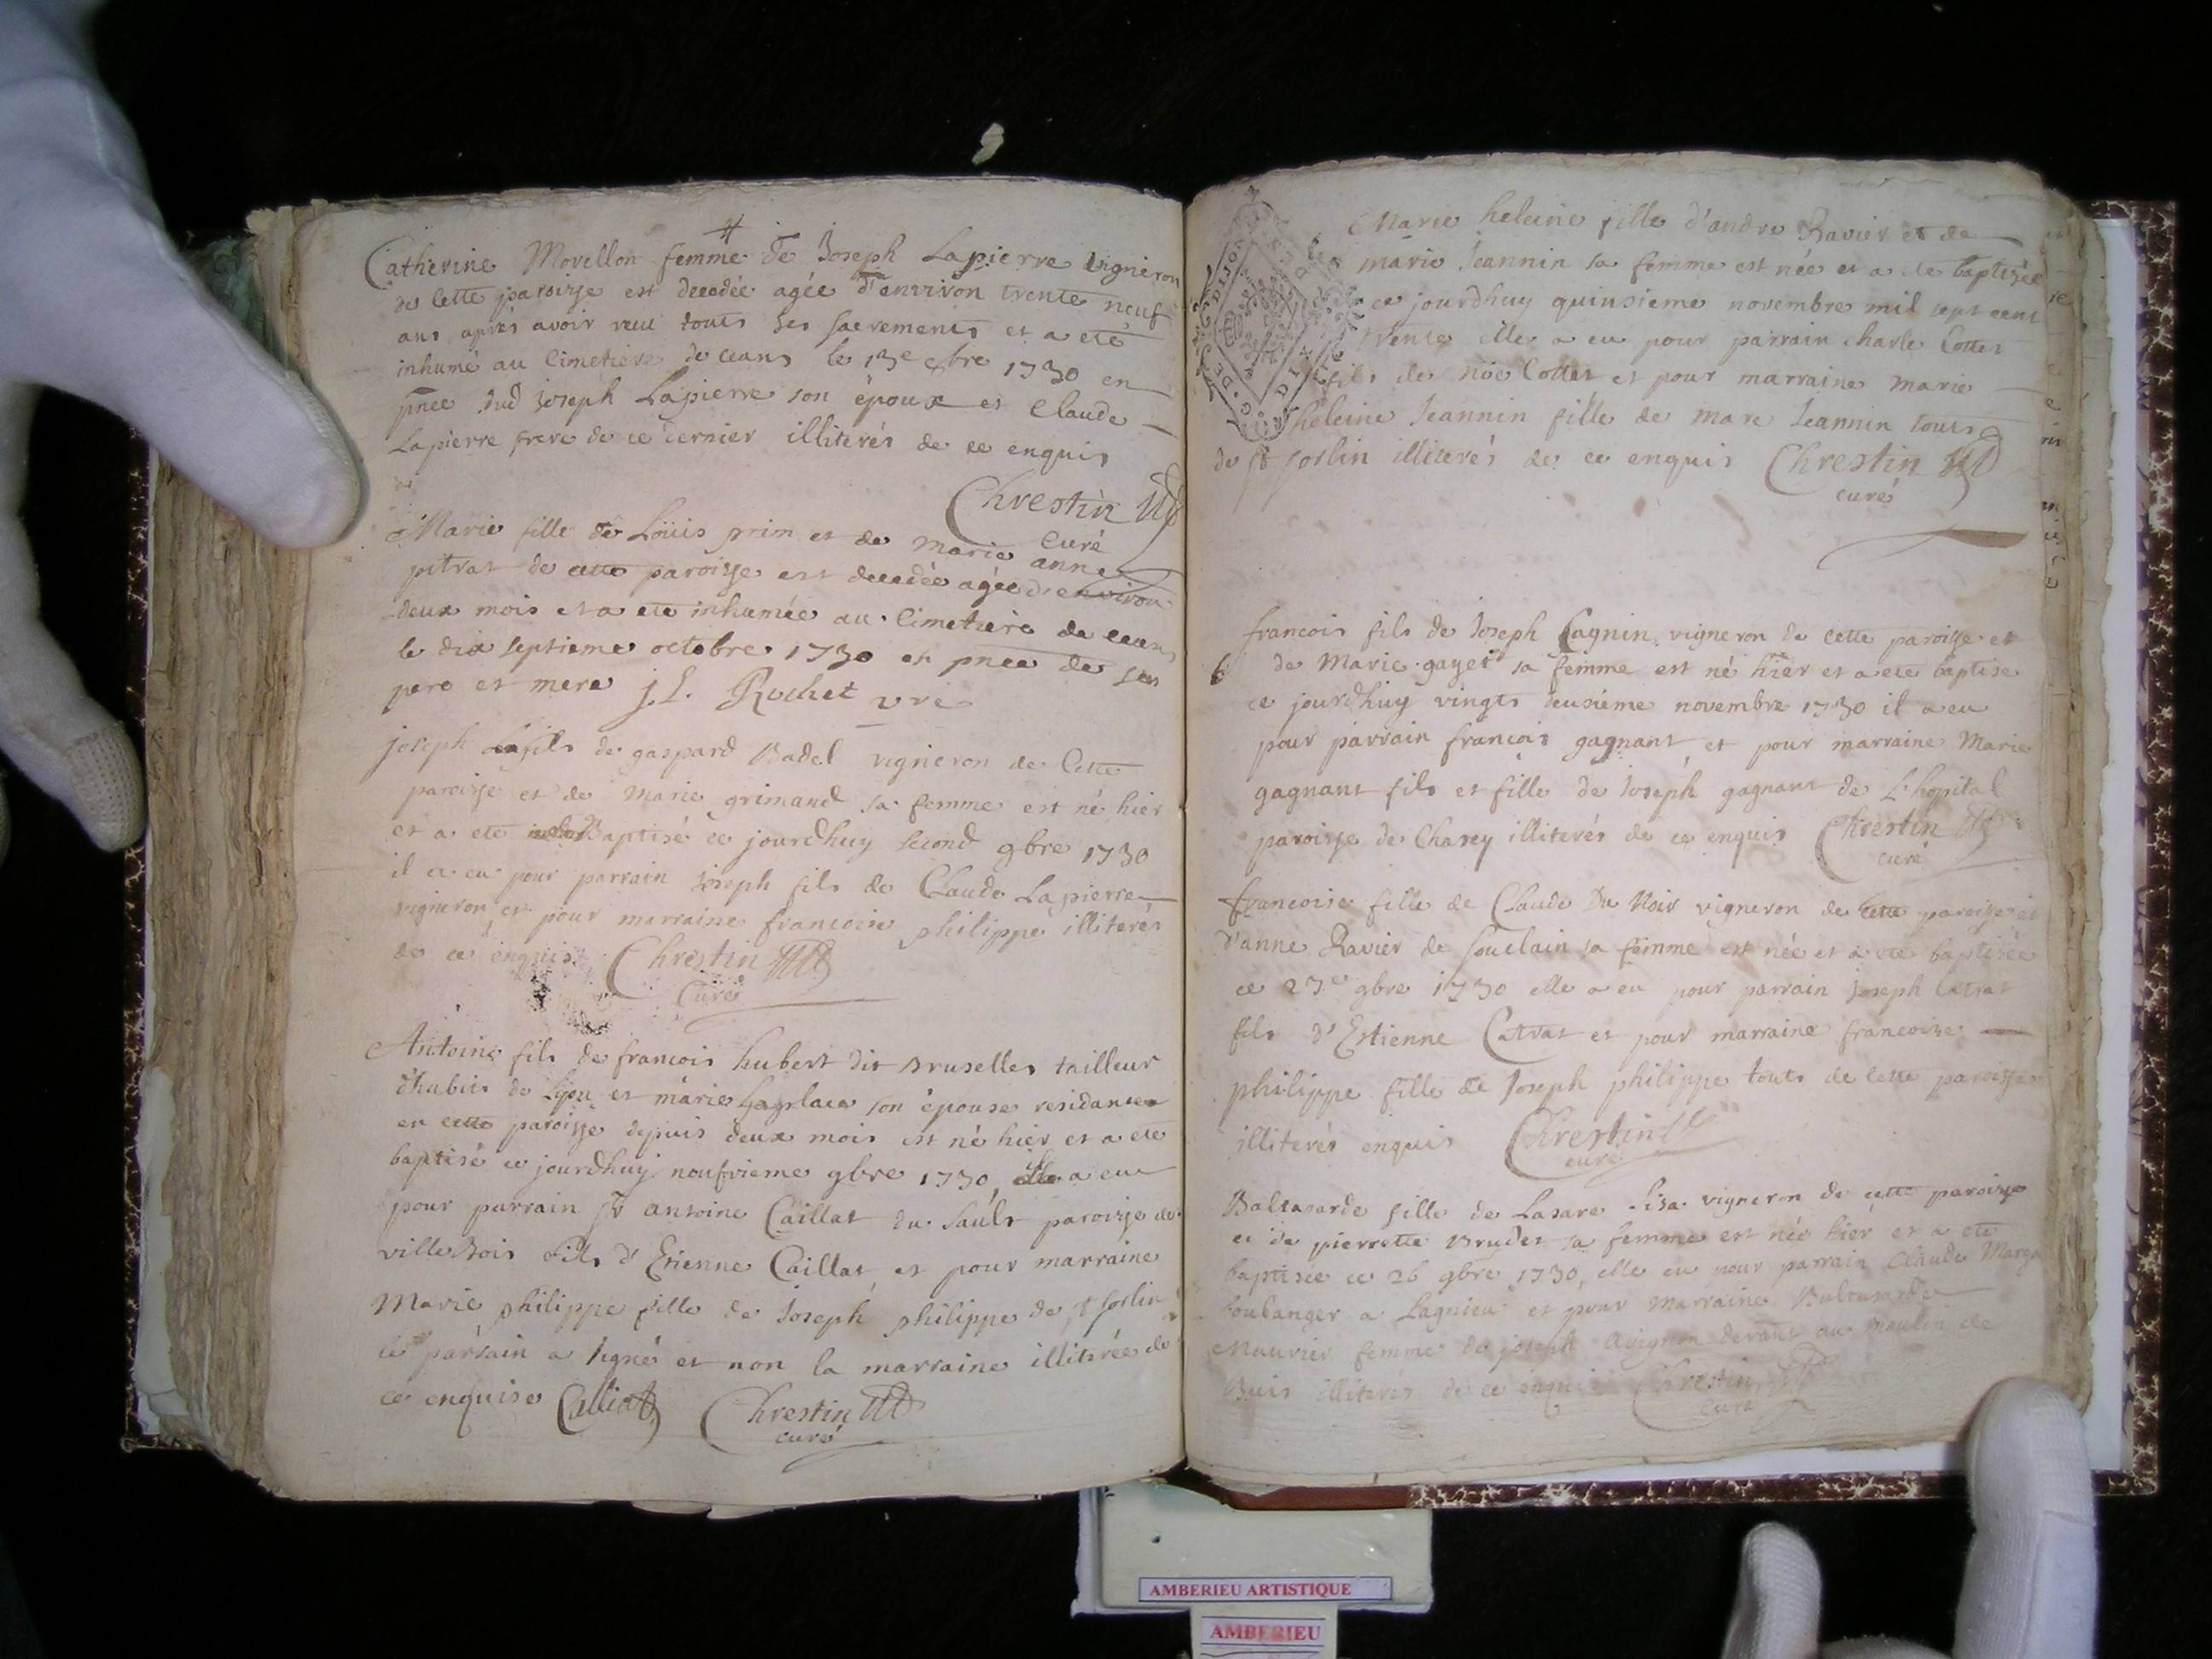 Catherine Morellon femme de Joseph Lapierre vigneron
de cette paroisse est decedée agée d'environ trente neuf
ans aprés avoir receu touts ses sacrements et a eté
inhumé au cimetiere de ceans le 13e 8bre 1730 en
pnce dud Joseph Lapierre son époux et Claude
Lapierre frere de ce dernier illiterés de ce enquis
Chrestin
Curé
Marie fille de Loüis prim et de Marie anne
pitrat de cette paroisse est decedée agée d'environ
deux mois et a ete inhumée au cimetiere de ceans
le dix septieme octobre 1730 en pnce de ses
pere et mere J.L. Rochet vre
joseph fils de gaspard Badel vigneron de cette
paroisse et de Marie grimand sa femme est né hier
et a ete Baptisé ce jourdhuy second 9bre 1730
il a eu pour parrain Joseph fils de Claude Lapierre
vigneron et pour marraine francoise philippe illiterés
de ce enquis Chrestin
Curé
Antoine fils de francois hubert dit Bruselles tailleur
d'habits de Lyon et marie Laplace son épouse residantes
en cette paroisse depuis deux mois est né hier et a ete
baptisé ce jourdhuy neufvieme 9bre 1730, il a eu
pour parrain Sr antoine Caillat du Sault paroisse de
villebois fils d'Etienne Caillat et pour marraine
Marie philippe fille de Joseph philippe de St Sorlin
le parrain a signé et non la marraine illiterée de
ce enquise Calliat Chrestin
curé
Marie heleine fille d'andre Ravier et de
marie Jeannin sa femme est née et a ete baptisée
ce jourdhuy quinsieme novembre mil sept cent
trente elle a eu pour parrain charle Cottet
fils de nöe Cottet et pour marraine marie
heleine Jeannin fille de marc Jeannin touts
de St Sorlin illiterés de ce enquis Chrestin
curé
francois fils de Joseph Gagnin vigneron de cette paroisse et
de Marie gayet sa femme est né hier et a ete baptisé
ce jourdhuy vingts deusiéme novembre 1730 il a eu
pour parrain francois gagnant et pour marraine Marie
gagnant fils et fille de Joseph gagnant de L'hopital
paroisse de Chasey illiterés de ce enquis Chrestin
curé
francoise fille de Claude Du Noir vigneron de cette paroisse et
d'anne Ravier de Souclain sa femme est née et a ete baptisée
ce 23e 9bre 1730 elle a eu pour parrain Joseph Catrat
fils d'Estienne Catrat et pour marraine francoise
philippe fille de Joseph philippe touts de cette paroisse
illiterés enquis Chrestin
curé
Baltasarde fille de Lasare Lisa vigneron de cette paroisse
et de pierrette Brudet sa femme est née hier et a ete
baptisée ce 26 9bre 1730, elle eu pour parrain Claude
boulanger a Lagnieu et pour Marraine Baltasarde
Maurier femme de joseph avignon devant au moulin de
Buis illiterés de ce enquis Chrestin
curé
AMBERIEU ARTISTIQUE
AMBERIEU